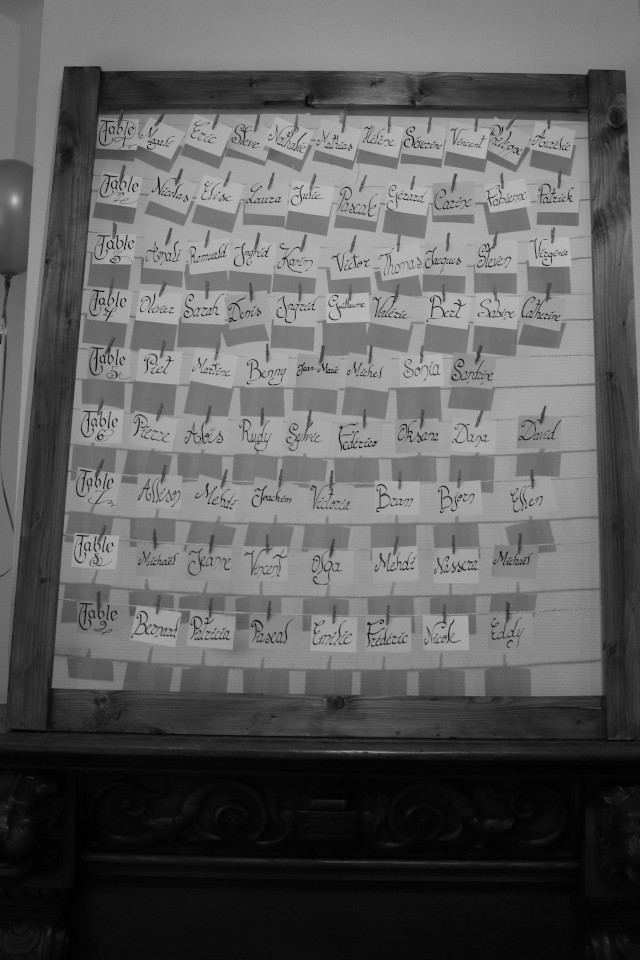 Table 1 Magali Eric Steve Nathalie Mathias Hélène Séverine Vincent Aurélie
Table 2 Nicolas Elise Laura Julie Pascale Gérard Carine Fabienne Patrick
Table 3 Amali Romuald Ingrid Karim Victor Thomas Jacques Steven Virginie
Table 4 Olivier Sarah Denis Ingrid Guillaume Valérie Bert Sabine Catherine
Table 5 Piet Martine Benny Jean-Marie Michel Sonja Sandrine
Table 6 Pierre Aloïs Rudy Sylvie Fédérico Oksana Dana David
Table 7 Allison Mehdi Joachim Victoria Bram Bjorn Ellen
Table 8 Michaël Jeanne Vincent Olga Mehdi Nassera Michael
Table 9 Bernard Patricia Pascal Emélie Fréderic Nicole Eddy